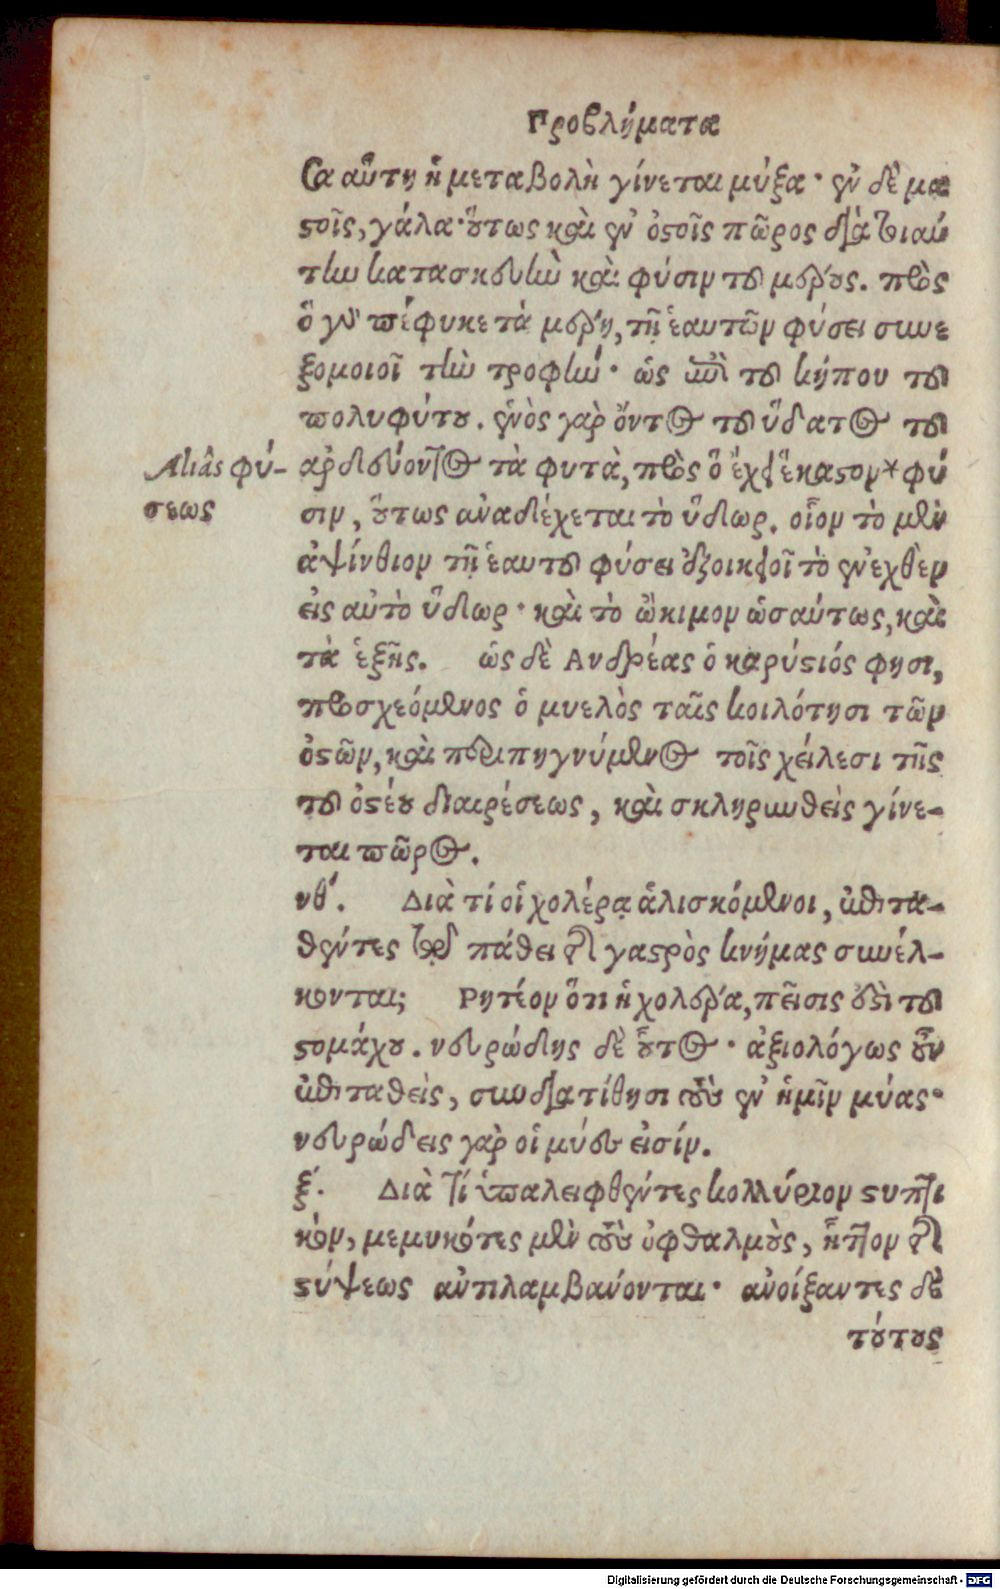 Προβλήματα
σα αὕτη ἡ μεταβολὴ γίνεται μύξα· ἐν δὲ μα
στοῖς, γάλα· οὕτως καὶ ἐν ὀστοῖς πῶρος διὰ τοιαύ
την κατασκευὴν καὶ φύσιν τοῦ μέρους. πρὸς
ὃ γὰρ πέφυκε τὰ μέρη, τῇ ἑαυτῶν φύσει συνε
ξομοιοῖ τὴν τροφήν· ὡς ἐπὶ τοῦ κήπου τοῦ
πολυφύτου. ἑνὸς γὰρ ὄντος τοῦ ὕδατος τοῦ
ἀρδεύοντος τὰ φυτὰ, πρὸς ὃ ἔχει ἕκαστον * φύ
Aliàs φύ-
σεως
σιν, οὕτως ἀναδέχεται τὸ ὕδωρ. οἷον τὸ μὲν
ἀψίνθιον τῇ ἑαυτοῦ φύσει ἐξοικειοῖ τὸ ἐνεχθὲν
εἰς αὐτὸ ὕδωρ· καὶ τὸ ὤκιμον ὡσαύτως, καὶ
τὰ ἑξῆς. ὡς δὲ Ανδρέας ὁ καρύστιός φησι,
προσχεόμενος ὁ μυελὸς ταῖς κοιλότησι τῶν
ὀστῶν, καὶ περιπηγνύμενος τοῖς χείλεσι τῆς
τοῦ ὀστέου διαιρέσεως, καὶ σκληρυνθεὶς γίνε-
ται πῶρος.
νθ΄. Διὰ τί οἱ χολέρᾳ ἁλισκόμενοι, ἐπιτα-
θέντες τῷ πάθει τῆς γαστρὸς κνήμας συνέλ-
κονται; Ρητέον ὅτι ἡ χολέρα, πεῖσις ἐστὶ τοῦ
στομάχου. νευρώδης δὲ οὗτος· ἀξιολόγως οὖν
ἐπιταθεὶς, συνδιατίθησι τοὺς ἐν ἡμῖν μύας·
νευρώδεις γὰρ οἱ μύες εἰσίν.
ξ΄. Διὰ τί ὑπαλειφθέντες κολλύριον στυπτι
κὸν, μεμυκότες μὲν τοὺς ὀφθαλμοὺς, ἧττον τῆς
στύψεως ἀντιλαμβάνονται· ἀνοίξαντες δὲ
τούτους
Digitalisierung gefördert durch die Deutsche Forschungsgemeinschaft - DFG